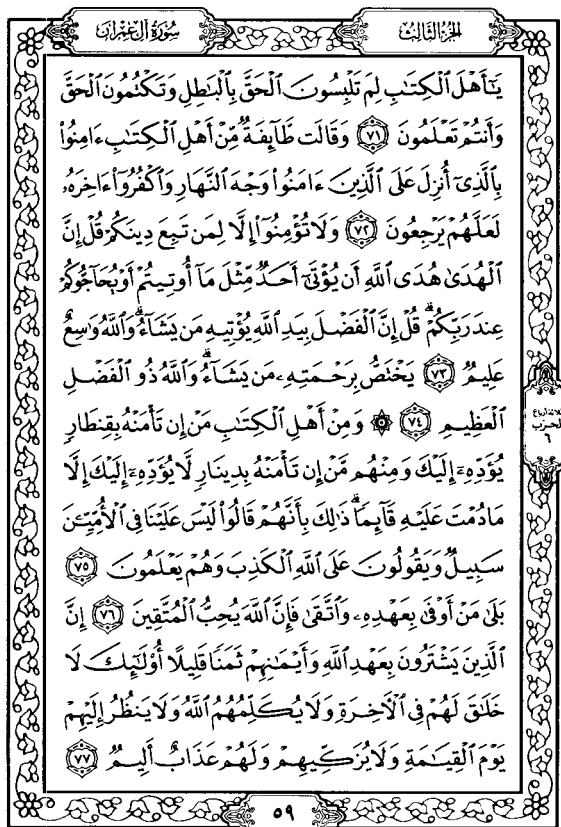 سُورَةُ آلِ عِمْرَانَ
الجُزْءُ الثَّالِثُ
يَٰٓأَهْلَ ٱلْكِتَٰبِ لِمَ تَلْبِسُونَ ٱلْحَقَّ بِٱلْبَٰطِلِ وَتَكْتُمُونَ ٱلْحَقَّ
وَأَنتُمْ تَعْلَمُونَ ٧١ وَقَالَت طَّآئِفَةٌ مِّنْ أَهْلِ ٱلْكِتَٰبِ ءَامِنُوا۟
بِٱلَّذِىٓ أُنزِلَ عَلَى ٱلَّذِينَ ءَامَنُوا۟ وَجْهَ ٱلنَّهَارِ وَٱكْفُرُوٓا۟ ءَاخِرَهُۥ
لَعَلَّهُمْ يَرْجِعُونَ ٧٢ وَلَا تُؤْمِنُوٓا۟ إِلَّا لِمَن تَبِعَ دِينَكُمْ قُلْ إِنَّ
ٱلْهُدَىٰ هُدَى ٱللَّهِ أَن يُؤْتَىٰٓ أَحَدٌ مِّثْلَ مَآ أُوتِيتُمْ أَوْ يُحَآجُّوكُمْ
عِندَ رَبِّكُمْ ۗ قُلْ إِنَّ ٱلْفَضْلَ بِيَدِ ٱللَّهِ يُؤْتِيهِ مَن يَشَآءُ ۗ وَٱللَّهُ وَٰسِعٌ
عَلِيمٌ ٧٣ يَخْتَصُّ بِرَحْمَتِهِۦ مَن يَشَآءُ ۗ وَٱللَّهُ ذُو ٱلْفَضْلِ
ٱلْعَظِيمِ ٧٤ ۞ وَمِنْ أَهْلِ ٱلْكِتَٰبِ مَنْ إِن تَأْمَنْهُ بِقِنطَارٍ
يُؤَدِّهِۦٓ إِلَيْكَ وَمِنْهُم مَّنْ إِن تَأْمَنْهُ بِدِينَارٍ لَّا يُؤَدِّهِۦٓ إِلَيْكَ إِلَّا
مَا دُمْتَ عَلَيْهِ قَآئِمًا ۗ ذَٰلِكَ بِأَنَّهُمْ قَالُوا۟ لَيْسَ عَلَيْنَا فِى ٱلْأُمِّيِّـۧنَ
سَبِيلٌ وَيَقُولُونَ عَلَى ٱللَّهِ ٱلْكَذِبَ وَهُمْ يَعْلَمُونَ ٧٥
بَلَىٰ مَنْ أَوْفَىٰ بِعَهْدِهِۦ وَٱتَّقَىٰ فَإِنَّ ٱللَّهَ يُحِبُّ ٱلْمُتَّقِينَ ٧٦ إِنَّ
ٱلَّذِينَ يَشْتَرُونَ بِعَهْدِ ٱللَّهِ وَأَيْمَٰنِهِمْ ثَمَنًا قَلِيلًا أُو۟لَٰٓئِكَ لَا
خَلَٰقَ لَهُمْ فِى ٱلْءَاخِرَةِ وَلَا يُكَلِّمُهُمُ ٱللَّهُ وَلَا يَنظُرُ إِلَيْهِمْ
يَوْمَ ٱلْقِيَٰمَةِ وَلَا يُزَكِّيهِمْ وَلَهُمْ عَذَابٌ أَلِيمٌ ٧٧
ثلاثة أرباع
الحزب
٦
٥٩